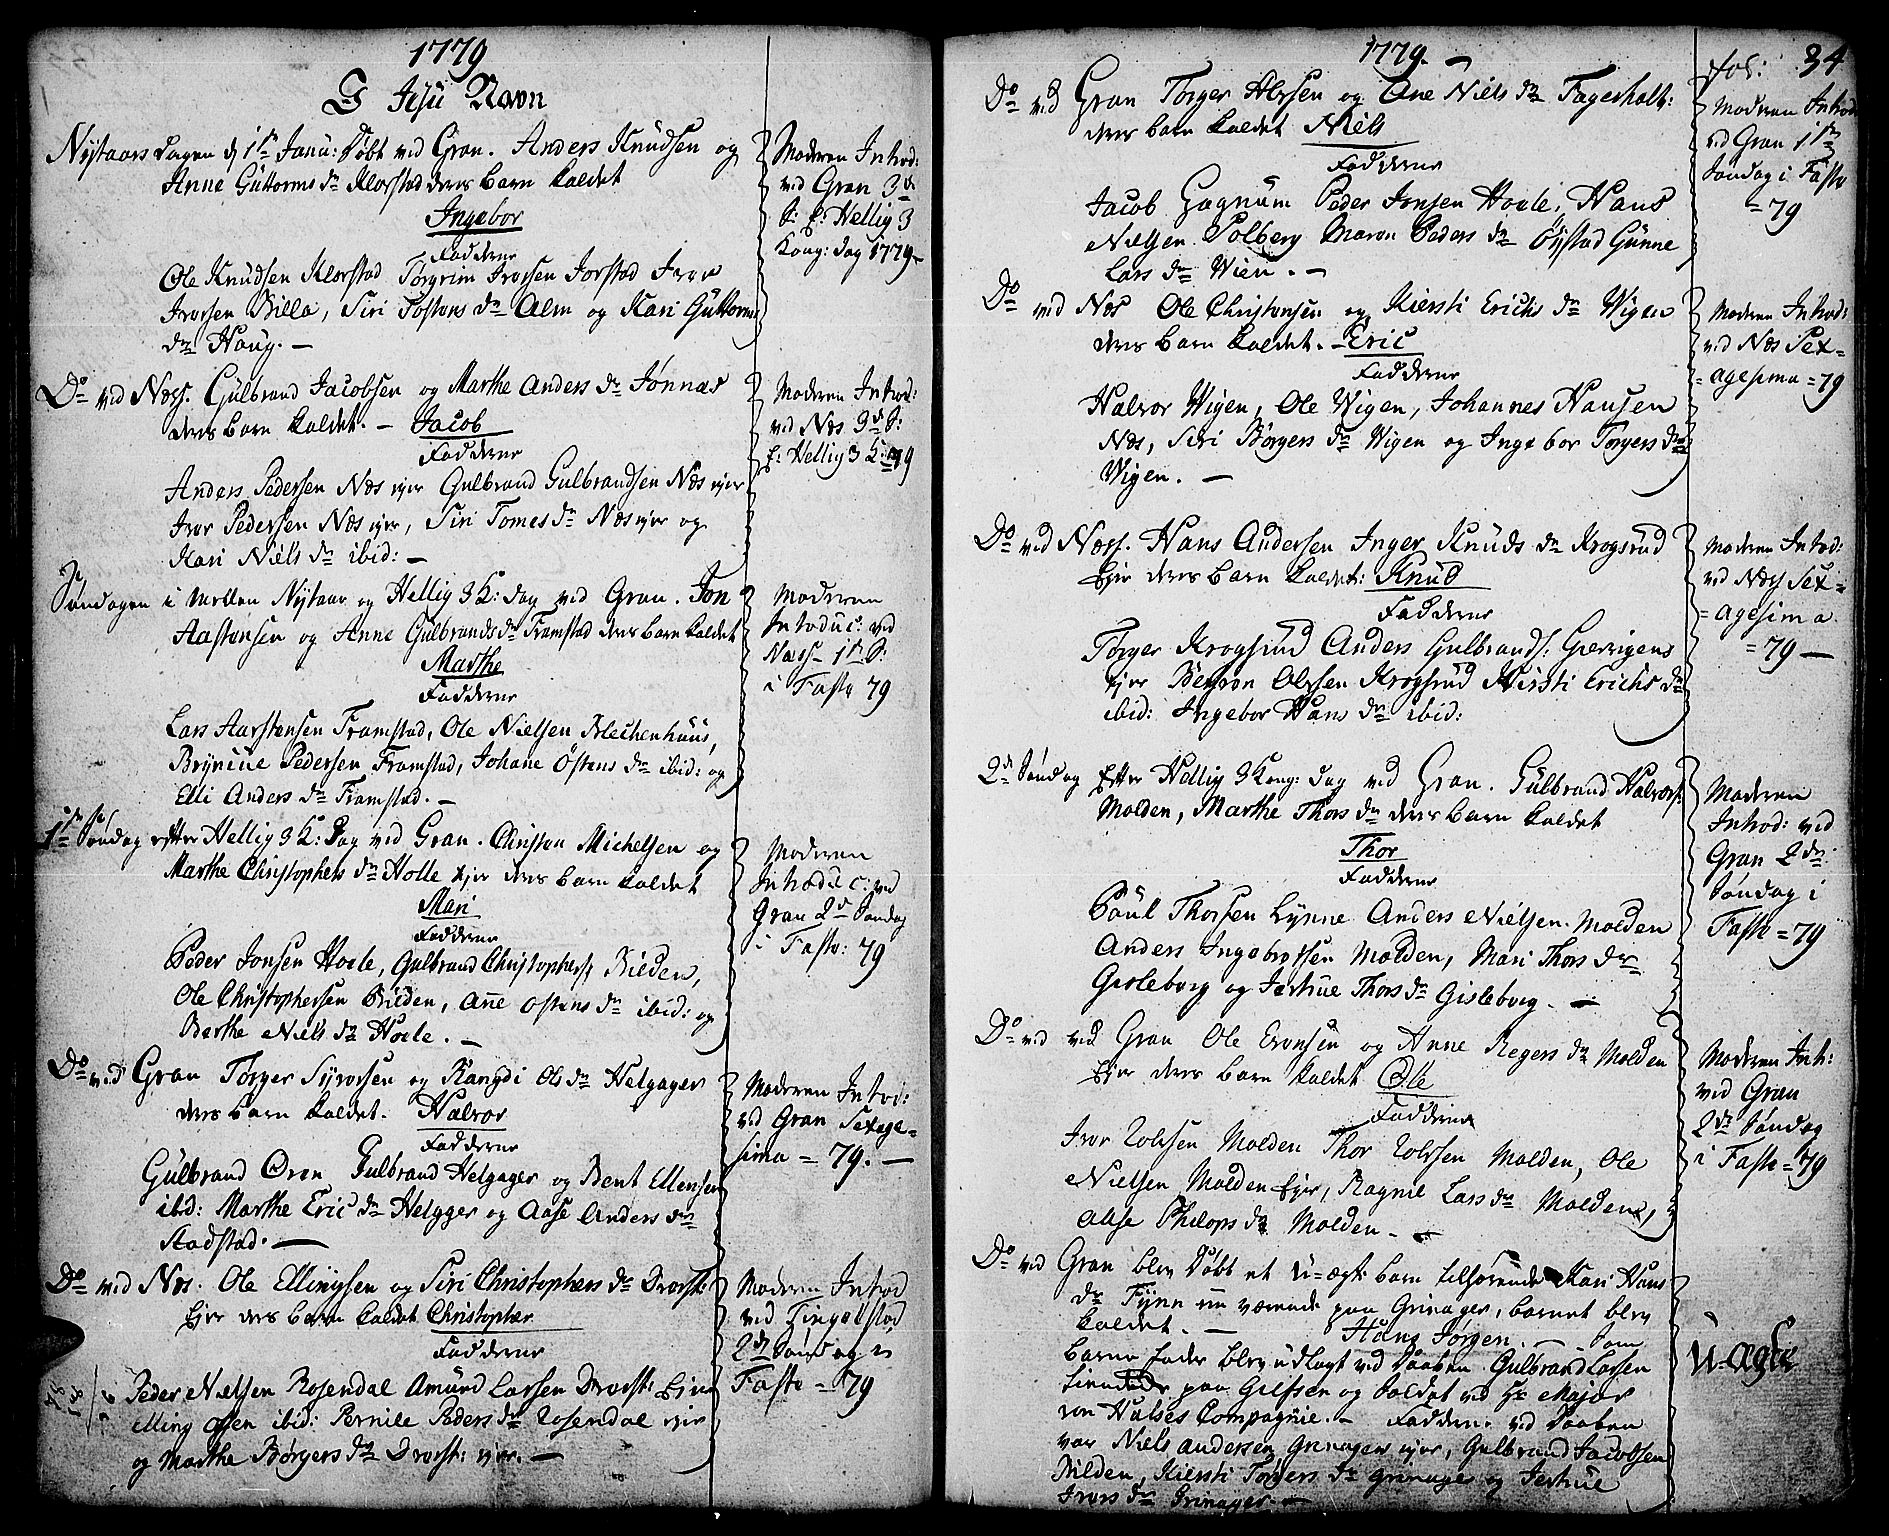 1779
I Jesu Navn
Nÿtaars Dagen d. 1ste Janu: Døbt ved Gran. Anders Knudsen og
Anne Guttorms dr Klorstad deres barn kaldet
Ingebor
Fadderne
Ole Knudsen Klorstad Torgrim Iversen Jorstad Iver
Iversen Billa, Siri Tostens dr Alm og Kari Guttorms
dr Haug. –
Moderen Introd:
ved Gran 3de
S: E: Hellig 3
Kong: Dag 1779 –
Do ved Næss. Gulbrand Jacobsen og Marthe Anders dr Jønnæs
deres barn kaldet. – Jacob
Fadderne
Anders Pedersen Næs ejer Gulbrand Gulbrandsen Næs ejer
Iver Pedersen Næs ejer, Siri Tomes dr Næs ejer og
Kari Niels dr ibid: –
Moderen Introd:
ved Næs 3de S:
E: Hellig 3 K: 79
Søndagen i mellem Nÿtaar og Hellig 3 K: dag ved Gran. Jon
Aastensen og Anne Gulbrands dr Framstad deres barn kaldet
Marthe
Fadderne
Lars Aarstensen Framstad, Ole Nielsen Blechenhuus,
Brÿnild Pedersen Framstad, Johane Østens dr ibid: og
Elli Anders dr Framstad. –
Moderen
Introduc: ved
Næss – 1ste S:
i Faste 79
1ste Søndag efter Hellig 3 K: Dag ved Gran. Christen Michelsen og
Marthe Christophers dr Holle ejer deres barn kaldet
Mari
Fadderne
Peder Jonsen Hoele, Gulbrand Christophers: Bilden,
Ole Christophersen Bilden, Anne Østens dr ibid: og
Berthe Niels dr Hoele. –
Moderen
Introduc: ved
Gran 2de Søndag
i Faste: 79
Do ved Gran Torger Syversen og Rangdi Ols dr Helgager
deres barn kaldet. Halvor
Fadderne
Gulbrand Øren Gulbrand Helgager og Bent Ellensen
ibid: Marthe Eric dr Helgger og Aase Anders dr
Aadstad. –
Moderen Introd:
ved Gran Sexage-
sima = 79. –
Do ved Næs. Ole Ellingsen og Siri Christophers dr Dvergst:
Ejer deres barn kaldet Christopher
Fadderne
Peder Nielsen Rosendal Amund Larsen Dvergst: Ejer
Elling Olsen ibid: Pernile Peders dr Rosendal ejer
og Marthe Børgers dr Dvergst: ejer. –
Moderen Introd
ved Tingelstad
2de Søndag i
Faste = 79
1779. –
fol: 34
Do ved Gran Torger Alersen og Ane Niels dr Fagerholt:
deres barn kaldet Niels
Fadderne
Jacob Gagnum Peder Jonsen Hoele, Hans
Nielsen Solberg Maren Peders dr Øÿstad Gunne
Lars dr Wien. –
Moderen Introd
ved Gran 1ste
Søndag i Faste
= 79
Do ved Næs Ole Christensen og Kiersti Erichs dr Wigen
deres barn kaldet. – Eric
Fadderne
Halvor Wigen, Ole Wigen, Johannes Hansen
Næs, Siri Børgers dr Wigen og Ingebor Torgers dr
Wigen. –
Moderen Introd:
ved Næs Sex-
= agesima = 79
Do ved Næss. Hans Andersen Inger Knuds dr Krogsrud
Ejer deres barn kaldet: Knud
Fadderne
Torger Krogsrud Anders Gulbrands: Gierrigens
ejer Bergron Olesen Krogsrud Kiersti Erichs dr
ibid: Ingebor Hans dr ibid:
Moderen Introd:
ved Næss Sex-
= agesima
= 79 –
2de Søndag Efter Hellig 3 Kong: Dag ved Gran. Gulbrand Halvors:
Molden, Marthe Thors dr deres barn kaldet
Thor
Fadderne
Poul Thorsen Lynne Anders Nielsen Molden
Anders Ingebretsen Molden, Mari Thors dr
Gisleberg og Jerthue Thors dr Gisleberg. –
Moderen
Introd: ved
Gran 2de
Søndag i
Faste = 79
Do ved ved Gran Ole Evensen og Anne Regers dr Molden
Ejer deres barn kaldet Ole
Fadderne
Iver Tolvsen Molden Thor Tolvsen Molden, Ole
Nielsen Molden Ejer, Ragnil Lars dr Molden,
Aase Philops dr Molden. –
Moderen Int:
ved Gran
2de Søndag
i Faste = 79
Do ved Gran blev Døbt et U-ægte barn tilhørende Kari Hans
dr Fÿnn nu værende paa Grinager, barnet blev
kaldet. – Hans Jørgen. – Som
barne Fader blev udlagt ved Daaben Gulbrand Larsen
tienende paa Gilfsen og Soldat ved Hr Major
von Halses Compagnie. – Fadderne ved Daaben
var Niels Andersen Grinager ejer, Gulbrand Jacobsen
Bilden, Kiersti Torgers dr Grinager og Jerthue
Ivers dr Grinager. –
U-ægte